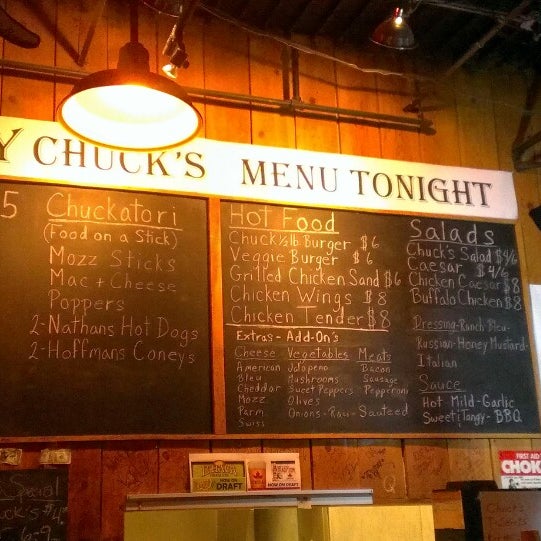 Y CHUCK'S MENU TONIGHT
5 Chuckatori
(Food on a Stick)
Mozz Sticks
Mac + Cheese
Poppers
2-Nathans Hot Dogs
2-Hoffmans Coneys
Hot Food
Chuck 1/2 lb Burger $6
Veggie Burger $6
Grilled Chicken Sand $6
Chicken Wings $8
Chicken Tender $8
Extras - Add-On's
Cheese Vegetables Meats
American Jalapeno Bacon
Bleu Mushrooms Sausage
Cheddar Sweet Peppers Pepperoni
Mozz Olives
Parm Onions-Raw-Sauteed
Swiss
Salads
Chuck's Salad $4/6
Caesar $4/6
Chicken Caesar $8
Buffalo Chicken $8
Dressing-Ranch Bleu-
Russian-Honey Mustard-
Italian
Sauce
Hot Mild-Garlic
Sweet & Tangy-BBQ
NOW ON DRAFT
NOW ON DRAFT
FIRST AID
CHOK
Chuck's